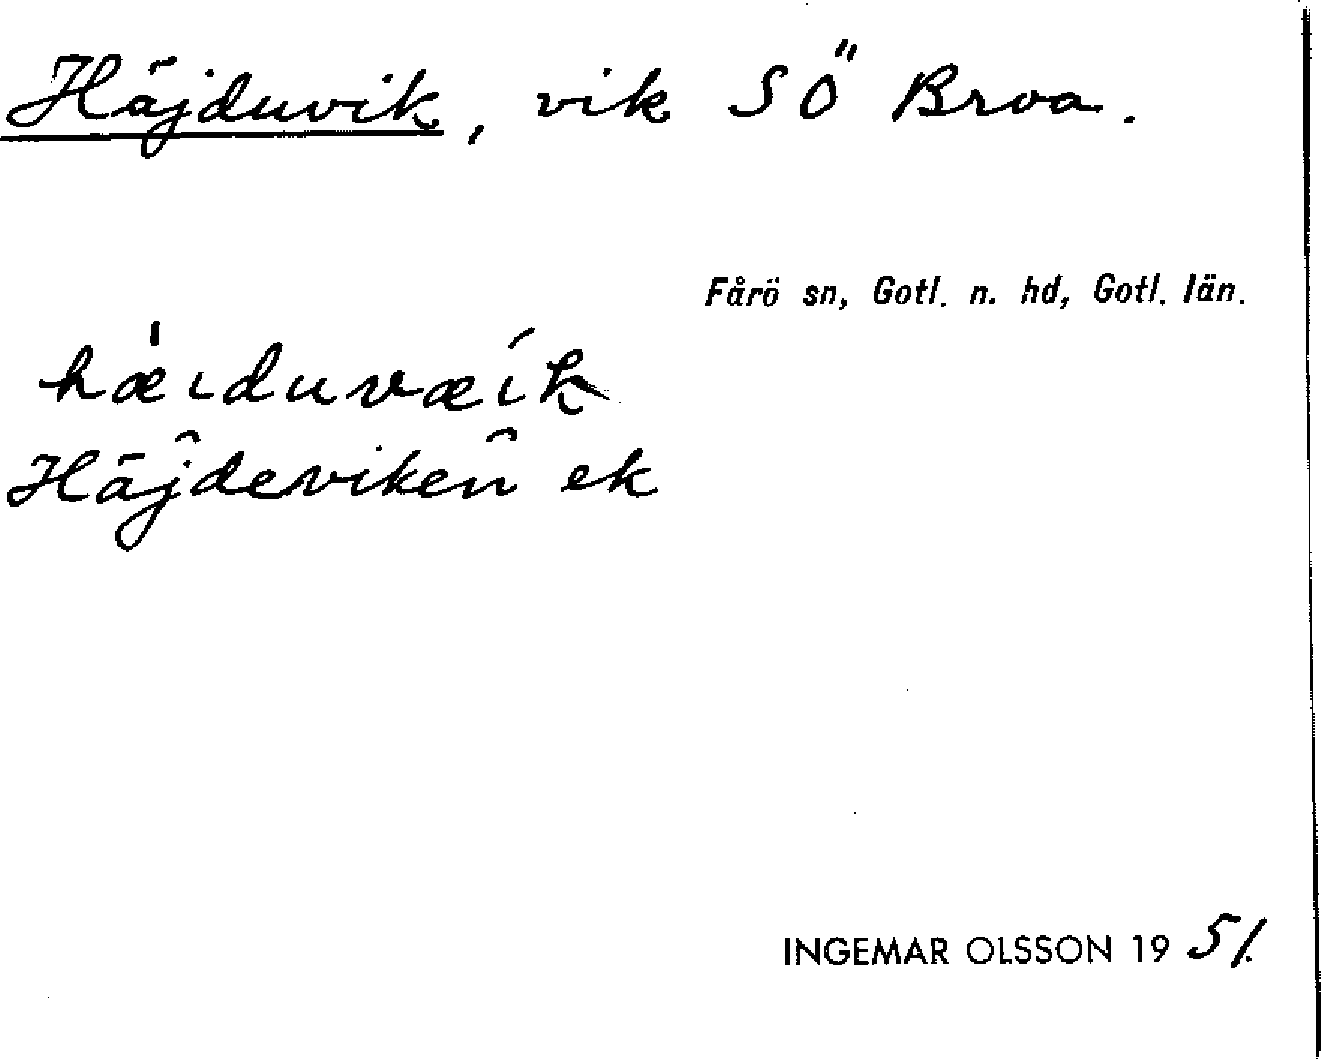 Häjduvik, vik SÖ Broa.
Fårö sn, Gotl. n. hd, Gotl. län.
hæ̍ıduvæík
Häĵdeviken̂ ek
INGEMAR OLSSON 1951.